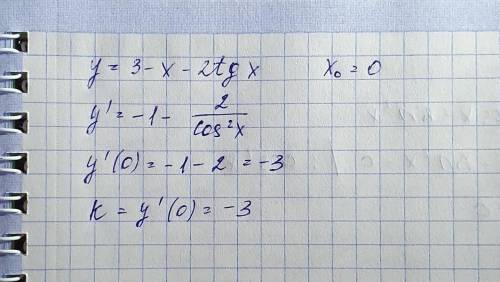 y = 3 - x - 2tg x x₀ = 0
y' = -1 - 2/cos²x
y'(0) = -1 - 2 = -3
k = y'(0) = -3